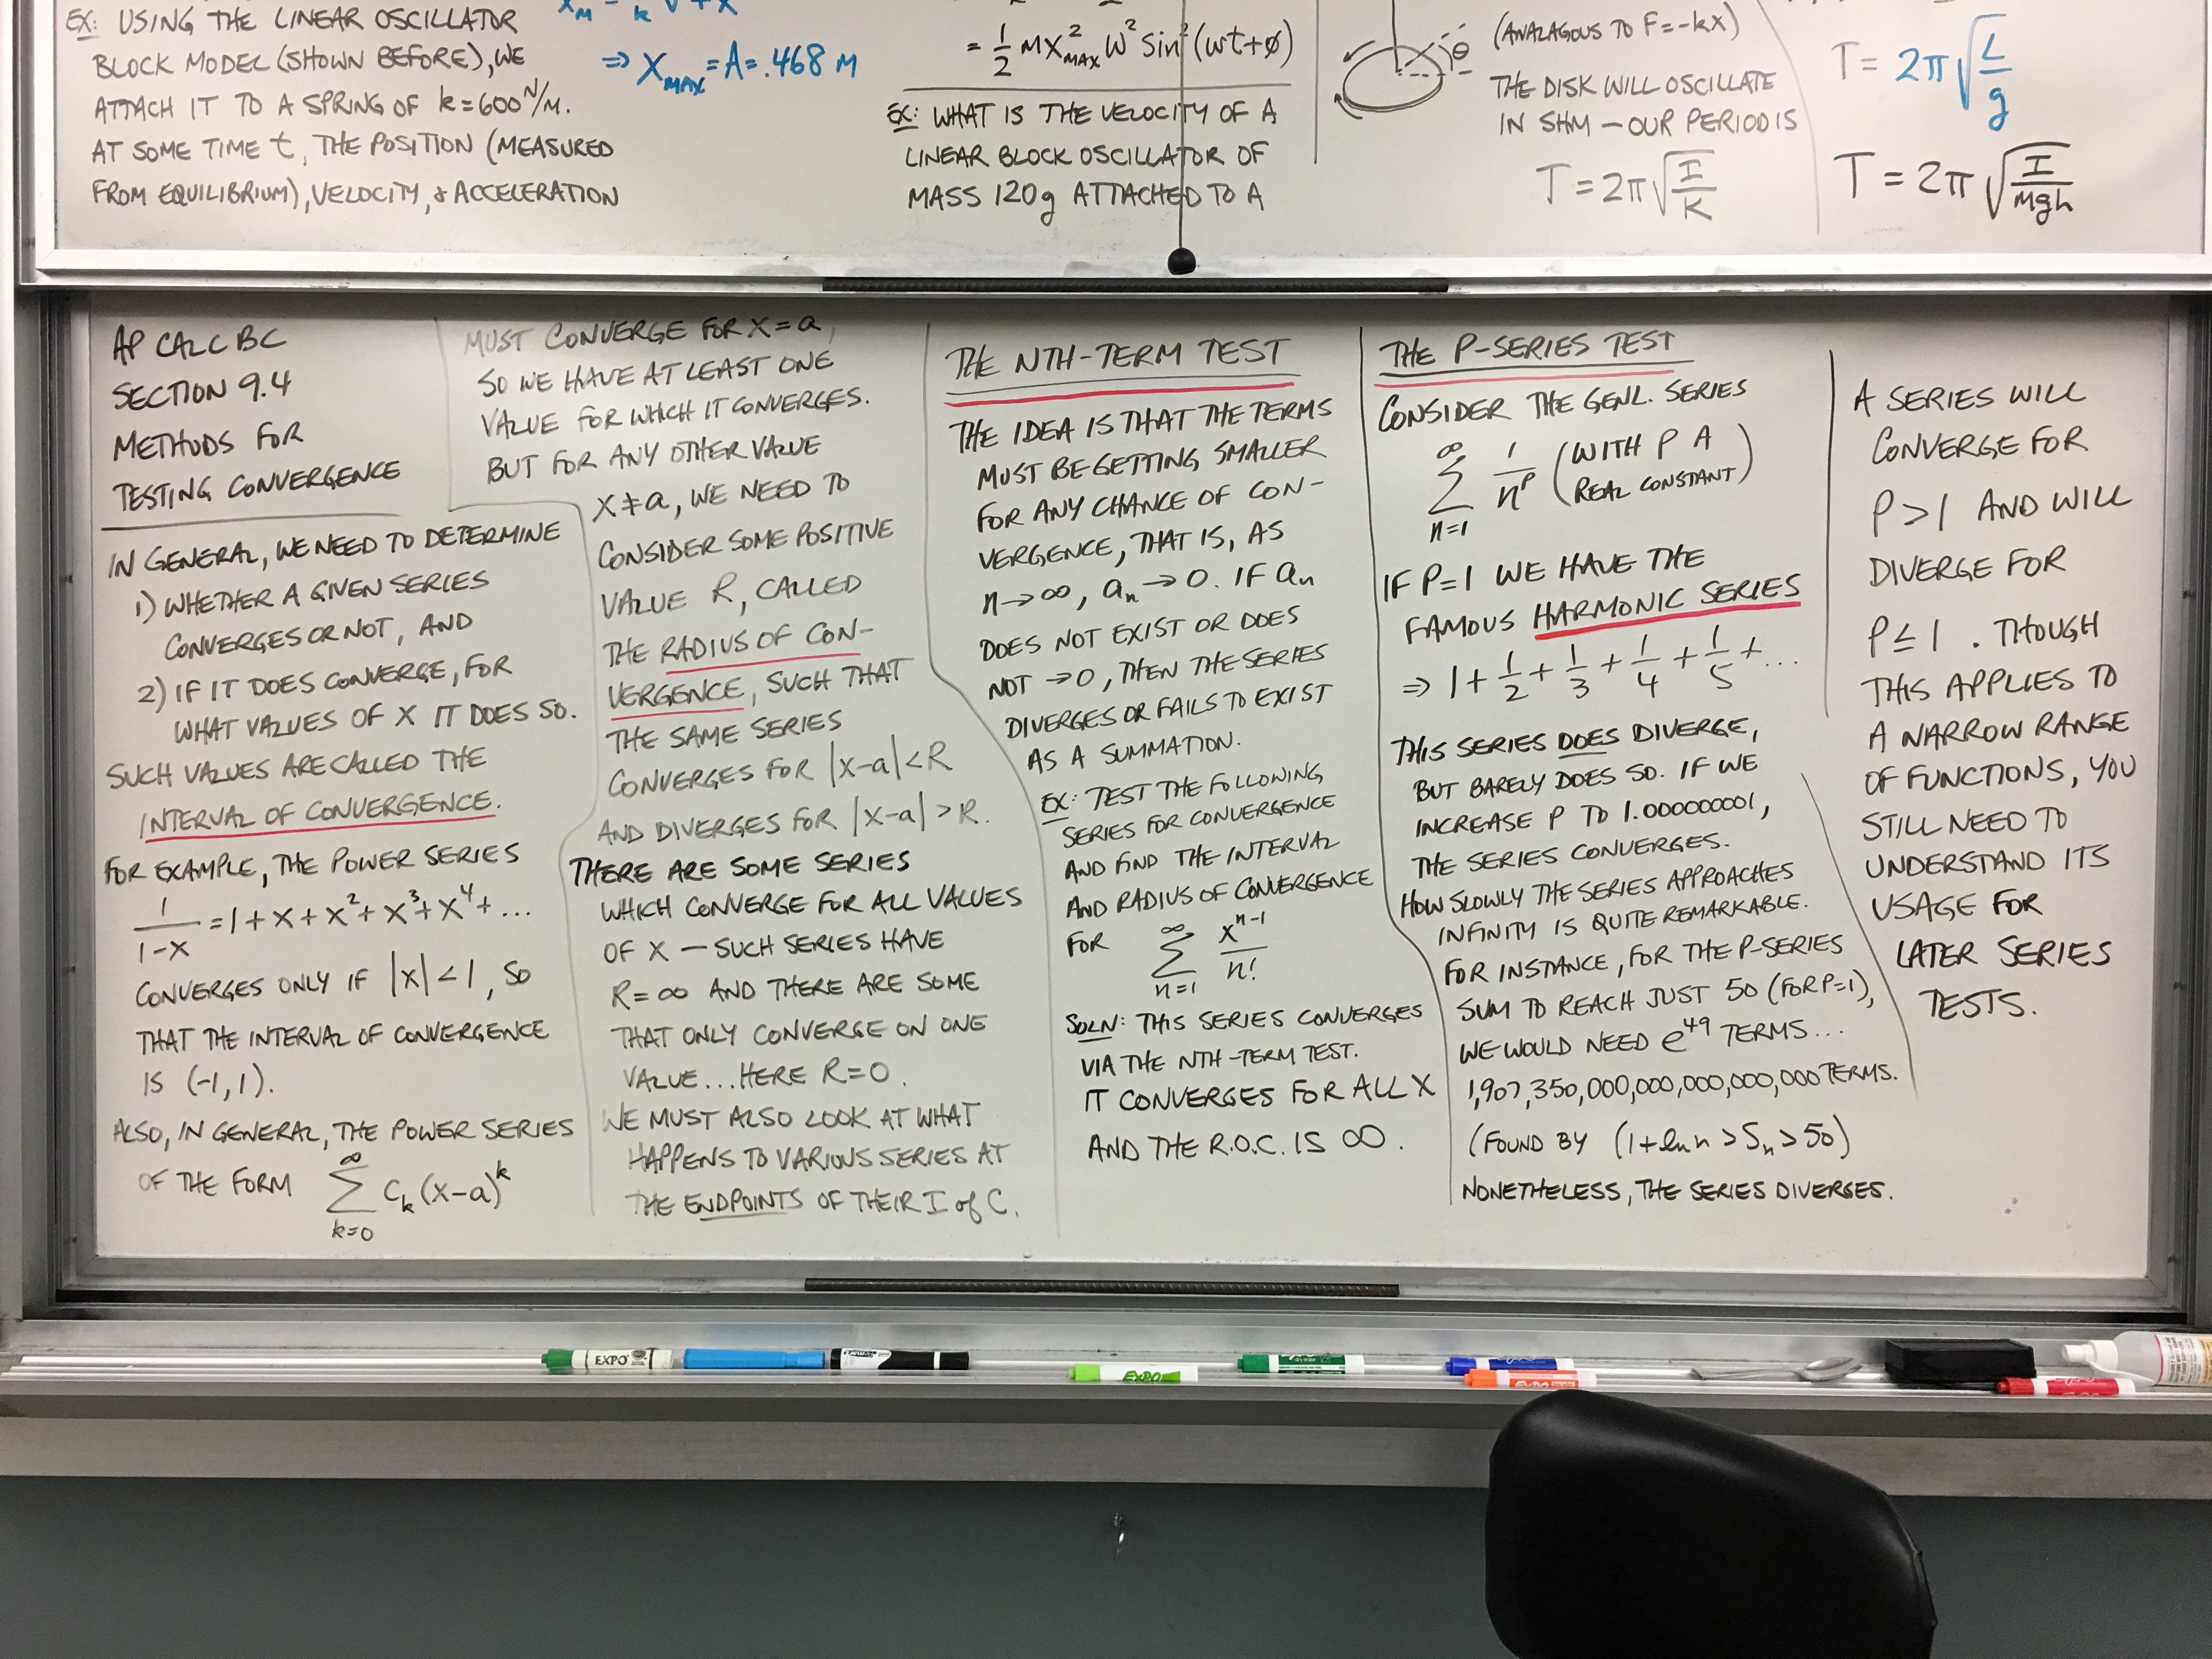 EX: USING THE LINEAR OSCILLATOR
BLOCK MODEL (SHOWN BEFORE), WE
ATTACH IT TO A SPRING OF k=600 N/M.
AT SOME TIME t, THE POSITION (MEASURED
FROM EQUILIBRIUM), VELOCITY, & ACCELERATION
⇒ X_MAX = A = .468 M
= 1/2 M X²_MAX ω² Sin² (ωt+φ)
EX: WHAT IS THE VELOCITY OF A
LINEAR BLOCK OSCILLATOR OF
MASS 120g ATTACHED TO A
θ
(ANALAGOUS TO F=-kx)
THE DISK WILL OSCILLATE
IN SHM — OUR PERIOD IS
T = 2π √(I/K)
T = 2π √(L/g)
T = 2π √(I/Mgh)
AP CALC BC
SECTION 9.4
METHODS FOR
TESTING CONVERGENCE
IN GENERAL, WE NEED TO DETERMINE
1) WHETHER A GIVEN SERIES
CONVERGES OR NOT, AND
2) IF IT DOES CONVERGE, FOR
WHAT VALUES OF X IT DOES SO.
SUCH VALUES ARE CALLED THE
INTERVAL OF CONVERGENCE.
FOR EXAMPLE, THE POWER SERIES
1/(1-X) = 1 + X + X² + X³ + X⁴ + ...
CONVERGES ONLY IF |X| < 1, SO
THAT THE INTERVAL OF CONVERGENCE
IS (-1, 1).
ALSO, IN GENERAL, THE POWER SERIES
OF THE FORM ∞ Σ k=0 C_k (X-a)^k
MUST CONVERGE FOR X=a,
SO WE HAVE AT LEAST ONE
VALUE FOR WHICH IT CONVERGES.
BUT FOR ANY OTHER VALUE
X≠a, WE NEED TO
CONSIDER SOME POSITIVE
VALUE R, CALLED
THE RADIUS OF CON-
VERGENCE, SUCH THAT
THE SAME SERIES
CONVERGES FOR |X-a| < R
AND DIVERGES FOR |X-a| > R.
THERE ARE SOME SERIES
WHICH CONVERGE FOR ALL VALUES
OF X — SUCH SERIES HAVE
R=∞ AND THERE ARE SOME
THAT ONLY CONVERGE ON ONE
VALUE... HERE R=0.
WE MUST ALSO LOOK AT WHAT
HAPPENS TO VARIOUS SERIES AT
THE ENDPOINTS OF THEIR I of C.
THE NTH-TERM TEST
THE IDEA IS THAT THE TERMS
MUST BE GETTING SMALLER
FOR ANY CHANCE OF CON-
VERGENCE, THAT IS, AS
n→∞, a_n→0. IF a_n
DOES NOT EXIST OR DOES
NOT →0, THEN THE SERIES
DIVERGES OR FAILS TO EXIST
AS A SUMMATION.
EX: TEST THE FOLLOWING
SERIES FOR CONVERGENCE
AND FIND THE INTERVAL
AND RADIUS OF CONVERGENCE
FOR ∞ Σ n=1 X^(n-1)/n!
SOLN: THIS SERIES CONVERGES
VIA THE NTH-TERM TEST.
IT CONVERGES FOR ALL X
AND THE R.O.C. IS ∞.
THE P-SERIES TEST
CONSIDER THE GENL. SERIES
∞ Σ n=1 1/n^P (WITH P A
REAL CONSTANT)
IF P=1 WE HAVE THE
FAMOUS HARMONIC SERIES
⇒ 1 + 1/2 + 1/3 + 1/4 + 1/5 + ...
THIS SERIES DOES DIVERGE,
BUT BARELY DOES SO. IF WE
INCREASE P TO 1.000000001,
THE SERIES CONVERGES.
HOW SLOWLY THE SERIES APPROACHES
INFINITY IS QUITE REMARKABLE.
FOR INSTANCE, FOR THE P-SERIES
SUM TO REACH JUST 50 (FOR P=1),
WE WOULD NEED e^49 TERMS...
1,907,350,000,000,000,000,000 TERMS.
(FOUND BY (1+ln n > S_n > 50)
NONETHELESS, THE SERIES DIVERGES.
A SERIES WILL
CONVERGE FOR
P>1 AND WILL
DIVERGE FOR
P≤1. THOUGH
THIS APPLIES TO
A NARROW RANGE
OF FUNCTIONS, YOU
STILL NEED TO
UNDERSTAND ITS
USAGE FOR
LATER SERIES
TESTS.
EXPO
EXPO